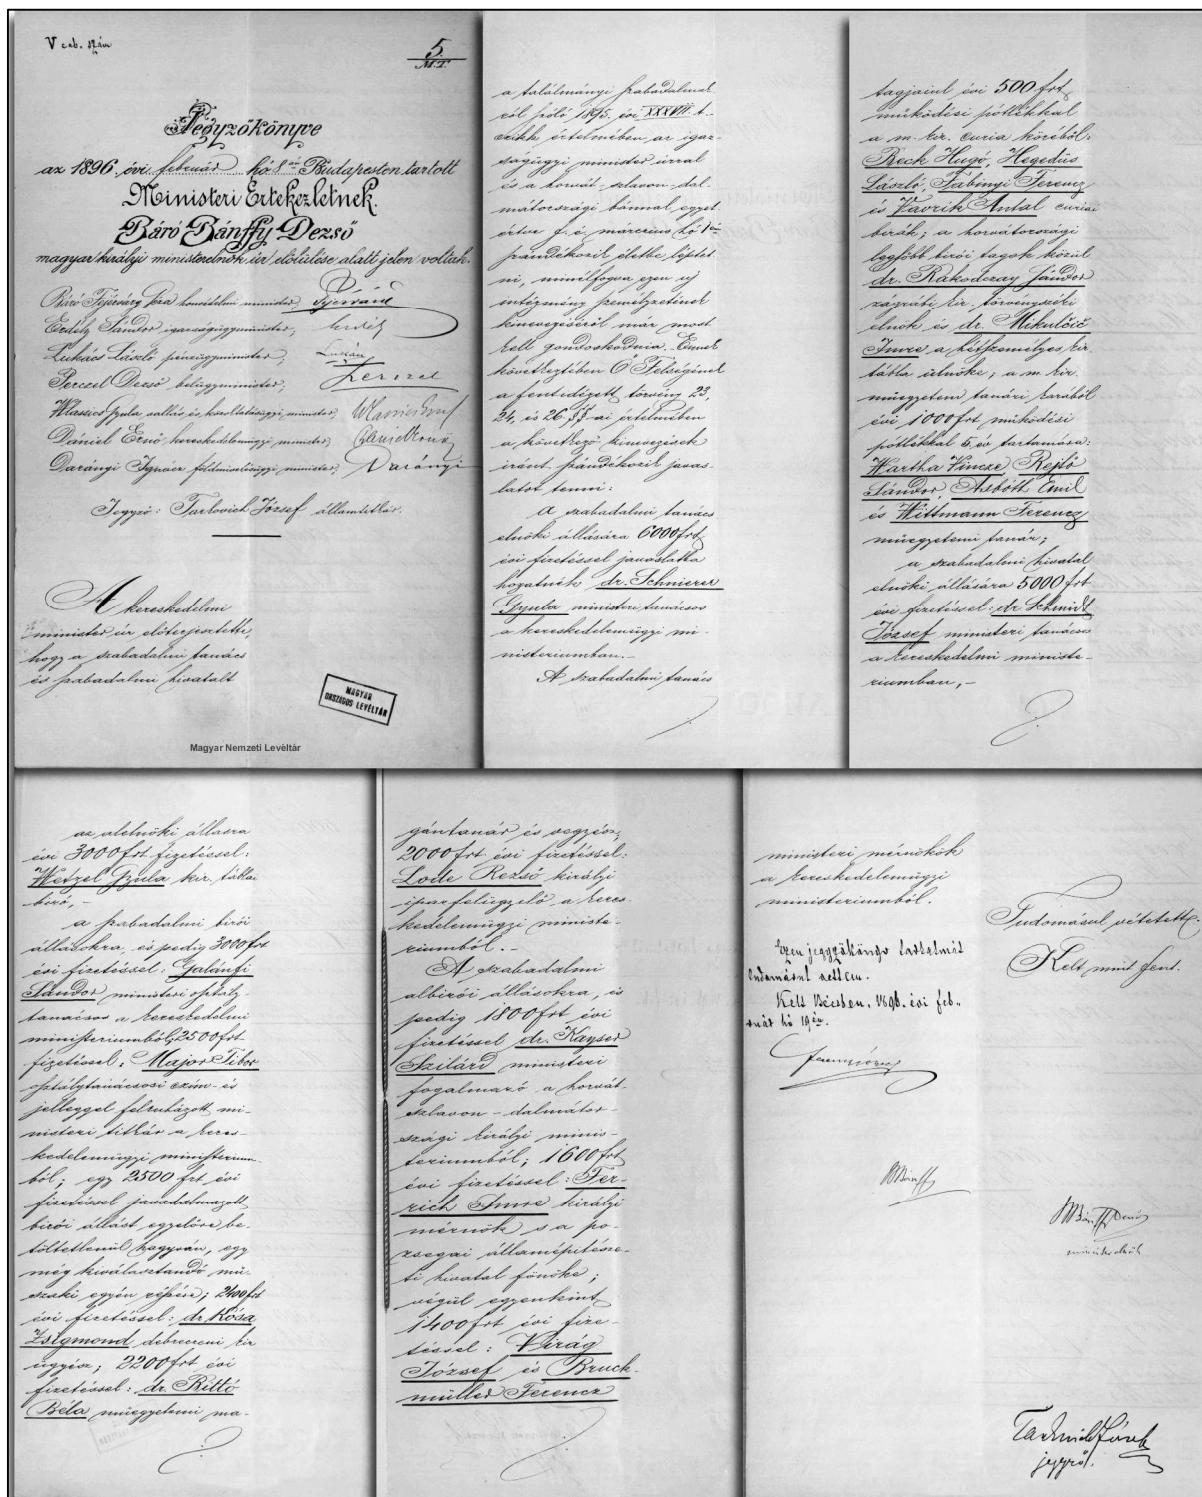 V cab. szám
5
M.T.
Jegyzőkönyve
az 1896. évi február hó 8án Budapesten tartott
Ministeri Értekezletnek.
Báró Bánffy Dezső
magyar királyi ministerelnök úr elölülése alatt jelen voltak.
Báró Fejérváry Géza honvédelmi minister,
Erdély Sándor igazságügyminister, Erdély
Lukács László pénzügyminister, Lukács
Perczel Dezső belügyminister, Perczel
Wlassics Gyula vallás és közoktatásügyi minister, Wlassics
Dániel Ernő kereskedelemügyi minister, Daniel Ernő
Darányi Ignácz földmívelésügyi minister, Darányi
Jegyző: Tarkovich József államtitkár.
A kereskedelmi
minister úr előterjesztette,
hogy a szabadalmi tanács
és szabadalmi hivatalt
MAGYAR
ORSZÁGOS LEVÉLTÁR
Magyar Nemzeti Levéltár
a találmányi szabadalmak
ról szóló 1895. évi XXXVII. t.
czikk értelmében az igaz-
ságügyi minister úrral
és a horvát-szlavon-dal-
mátországi bánnal egyet-
értve f. é. márczius hó 1én
szándékozik életbe léptet-
ni, minélfogva ezen uj
intézmény személyzetének
kinevezéséről már most
kell gondoskodnia. Ennek
következtében Ő Felségének
a fentidézett törvény 23,
24, és 26 §§-ai értelmében
a következő kinevezések
iránt szándékozik javas-
latot tenni:
A szabadalmi tanács
elnöki állására 6000 frt
évi fizetéssel javaslatba
hozatnék dr. Schnierer
Gyula ministeri tanácsos
a kereskedelemügyi mi-
nisteriumban.-
A szabadalmi tanács
tagjaiul évi 500 frt
működési pótlékkal
a m. kir. curia köréből:
Beck Hugó, Hegedüs
László, Fabinyi Ferencz
és Vavrik Antal curiai
birák; a horvátországi
legfőbb birói tagok közül
dr. Rakodczay Sándor
zágrábi kir. törvényszéki
elnök és dr. Mikulčič
Imre a hétszemélyes kir.
tábla ülnöke; a m. kir.
müegyetem tanári karából
évi 1000 frt működési
pótlékkal 5. év tartamára:
Wartha Vincze, Rejtő
Sándor, Asbóth Emil
és Wittmann Ferencz
müegyetemi tanár;
a szabadalmi hivatal
elnöki állására 5000 frt
évi fizetéssel: dr Schmidt
József ministeri tanácsos
a kereskedelmi ministe-
riumban,-
az alelnöki állásra
évi 3000 frt fizetéssel:
Wetzel Gyula kir. táblai
biró,-
a szabadalmi birói
állásokra, és pedig 3000 frt
évi fizetéssel: Galánfi
Sándor ministeri osztály-
tanácsos a kereskedelmi
ministeriumból; 2500 frt
fizetéssel: Major Tibor
osztálytanácsosi czím- és
jelleggel felruházott mi-
nisteri titkár a keres-
kedelemügyi ministerium-
ból; egy 2500 frt évi
fizetéssel javadalmazott
birói állást egyelőre be-
töltetlenül hagyván, egy
még kiválasztandó mü-
szaki egyén részére; 2400 frt
évi fizetéssel: dr Kósa
Zsigmond debreczeni kir
ügyész; 2200 frt évi
fizetéssel: dr. Rittó
Béla müegyetemi ma-
gántanár és vegyész,
2000 frt évi fizetéssel:
Lode Rezső királyi
iparfelügyelő a keres-
kedelemügyi ministe-
riumból.-
A szabadalmi
albirói állásokra, és
pedig 1800 frt évi
fizetéssel dr. Kayser
Szilárd ministeri
fogalmazó a horvát-
szlavon-dalmátor-
szági királyi minis-
teriumból; 1600 frt
évi fizetéssel: Fer-
rich Imre királyi
mérnök s a po-
zsegai államépitésze-
ti hivatal főnöke;
végül egyenkint
1400 frt évi fize-
téssel: Virág
József és Bruck-
müller Ferencz
ministeri mérnökök
a kereskedelemügyi
ministeriumból.
Tudomásul vétetett.
Kelt mint fent.
Ezen jegyzőkönyv tartalmát
tudomásul vettem.
Kelt Bécsben, 1896. évi feb-
ruár hó 19én.
Ferencz József
Bánffy
Bánffy Dezső
ministerelnök
Tarkovich József
jegyző.